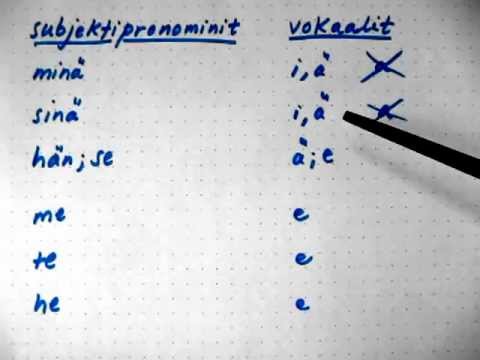 subjektipronominit vokaalit
minä i, ä
sinä i, ä
hän; se ä; e
me e
te e
he e